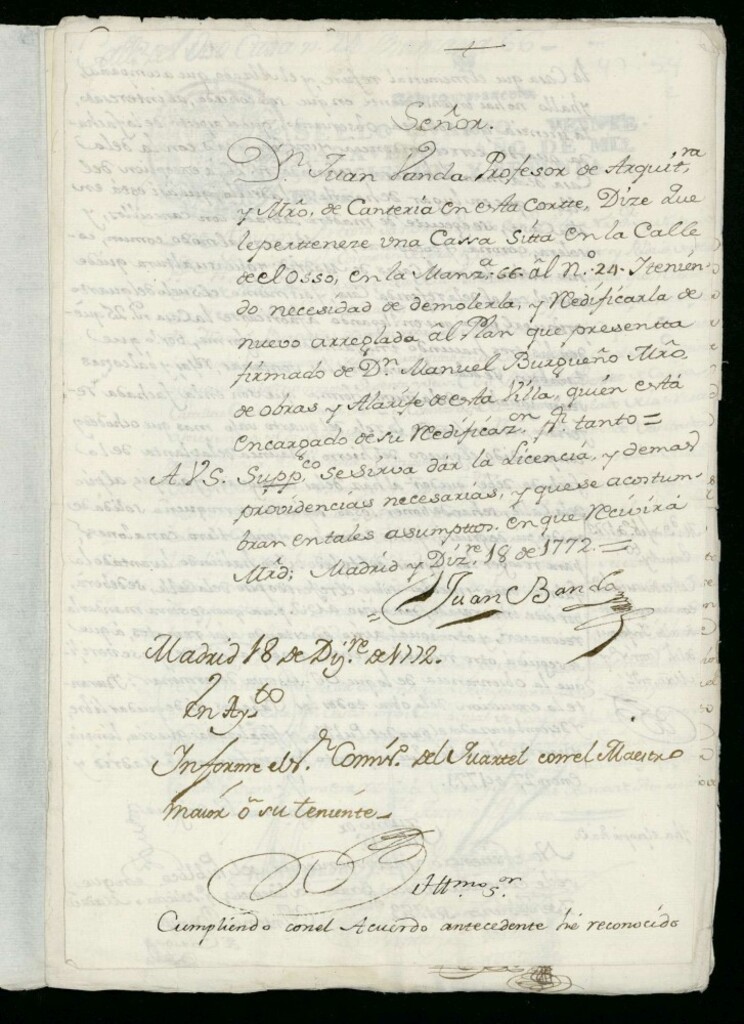 +
Señor.
Dn. Juan Vanda Profesor de Arquitra.
y Mro. de Canteria en esta Cortte, Dize que
le perteneze vna Cassa Sitta en la Calle
de el Osso, en la Manza. 66. âl No. 24. Itenien-
do necesidad de demolerla, y Redificarla de
nuevo arreglada âl Plan que presentta
firmado de Dn. Manuel Burgueño Mro.
de obras y Alarife de esta Villa, quien está
encargado de su Redificazon. Pr. tanto =
A.V.S. Suppco. se sirva dár la Licencia, y demas
providencias necesarias, y que se acostum-
bran en tales asumptos. en que Recivirá
Mrd; Madrid y Dizre. 18 de 1772. =
= Juan Banda
Madrid 18 de Dizre. de 1772.
En Ayto.
Informe el Sr. Comiso. del Quartel con el Maestro
maior ô su teniente
Illmo. Sor.
Cumpliendo con el Acuerdo antecedente hé reconocido